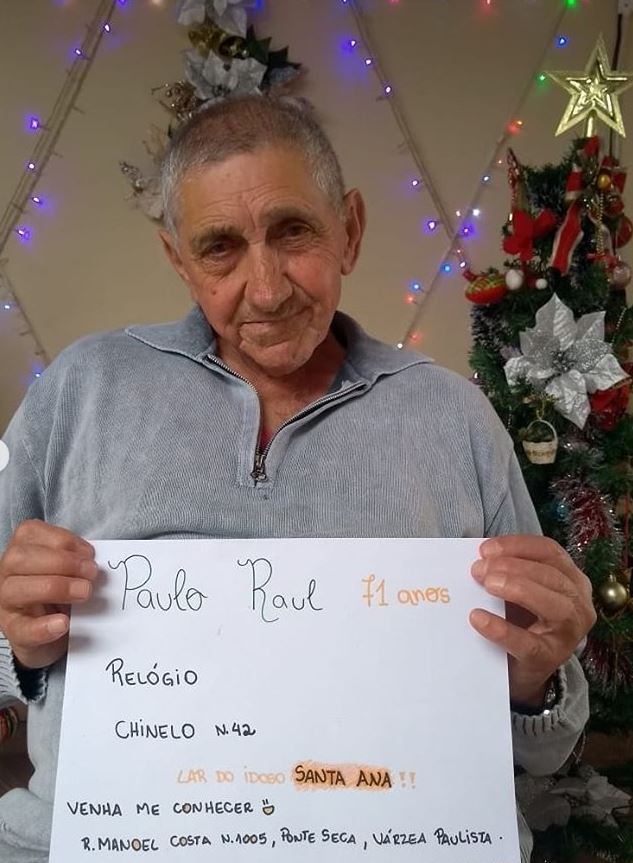 Paulo Raul 71 anos
RELÓGIO
CHINELO N.42
LAR DO IDOSO SANTA ANA!!
VENHA ME CONHECER
R. MANOEL COSTA N.1005, PONTE SECA, VÁRZEA PAULISTA.